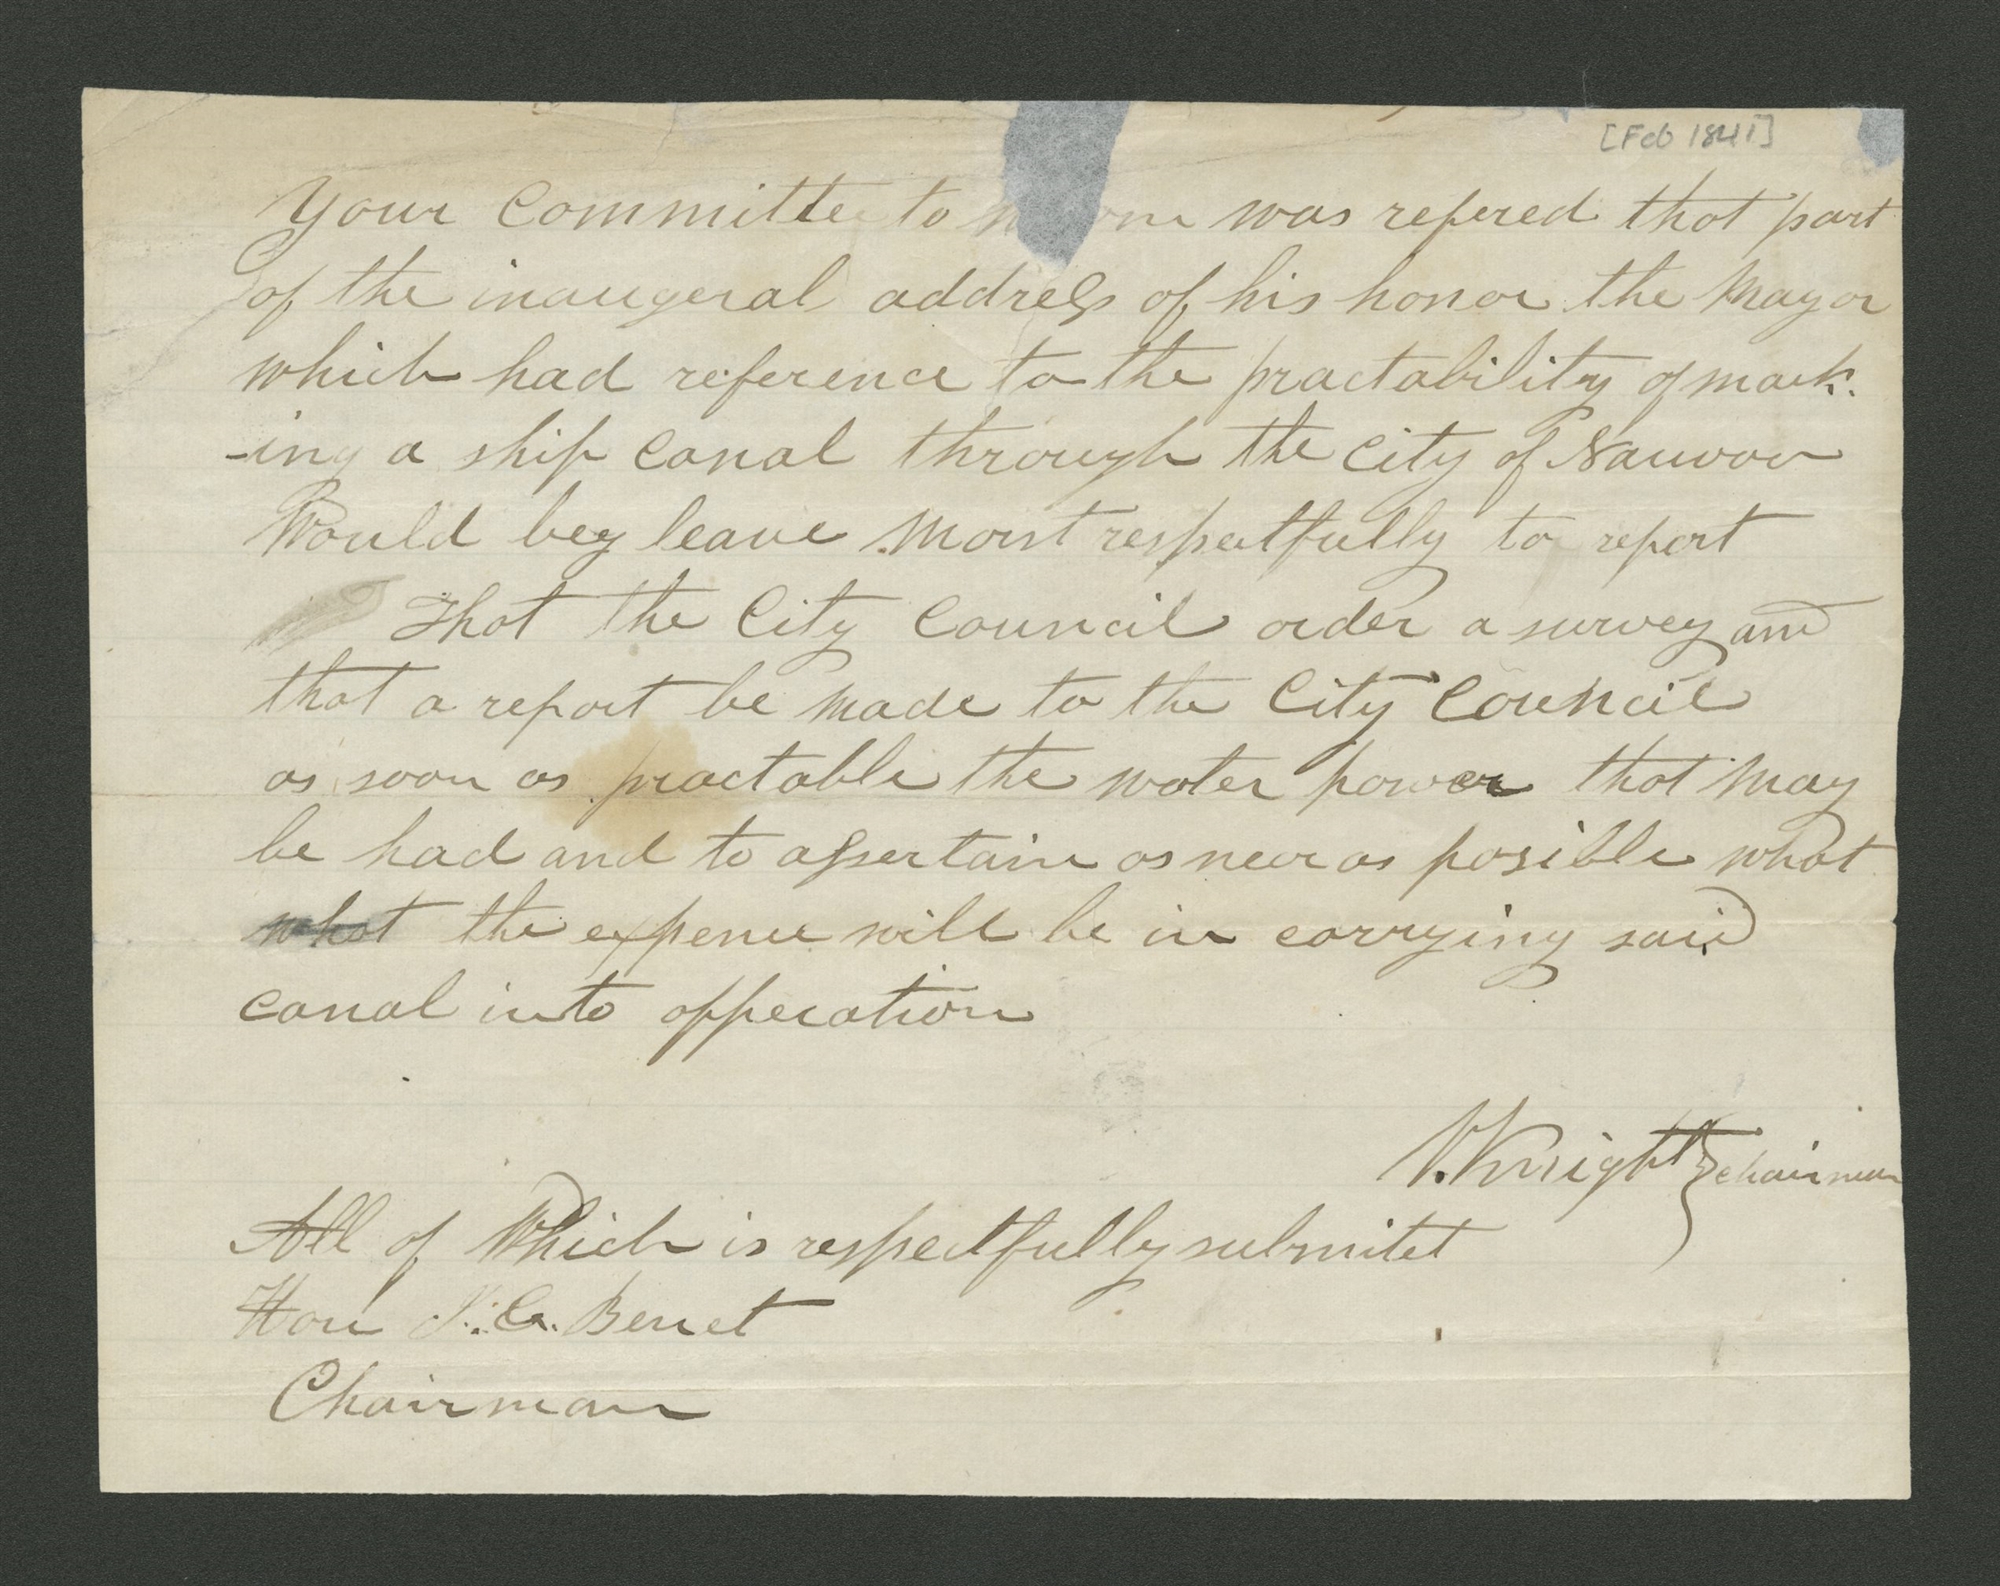 [Feb 1841]
Your Committee to whom was refered that part
of the inaugeral address of his honor the Mayor
which had reference to the practability of mack-
-ing a ship canal through the City of Nauvoo
Would beg leave most respectfully to report
That the City Council order a survey and
that a report be made to the City Council
as soon as practable the water power that may
be had and to assertain as near as posible what
what the expence will be in carrying said
canal into opperation
V. Knight } chairman
All of Which is respectfully submitet
Hon J. C. Benet
Chairman